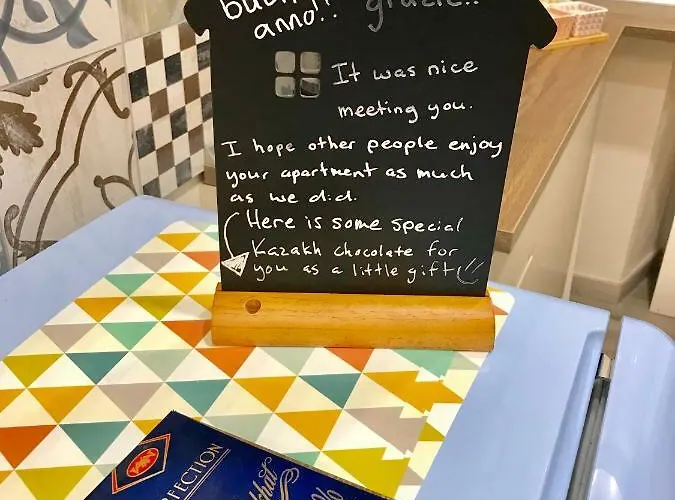 anno!! grazie!!
It was nice
meeting you.
I hope other people enjoy
your apartment as much
as we did.
Here is some special
Kazakh chocolate for
you as a little gift